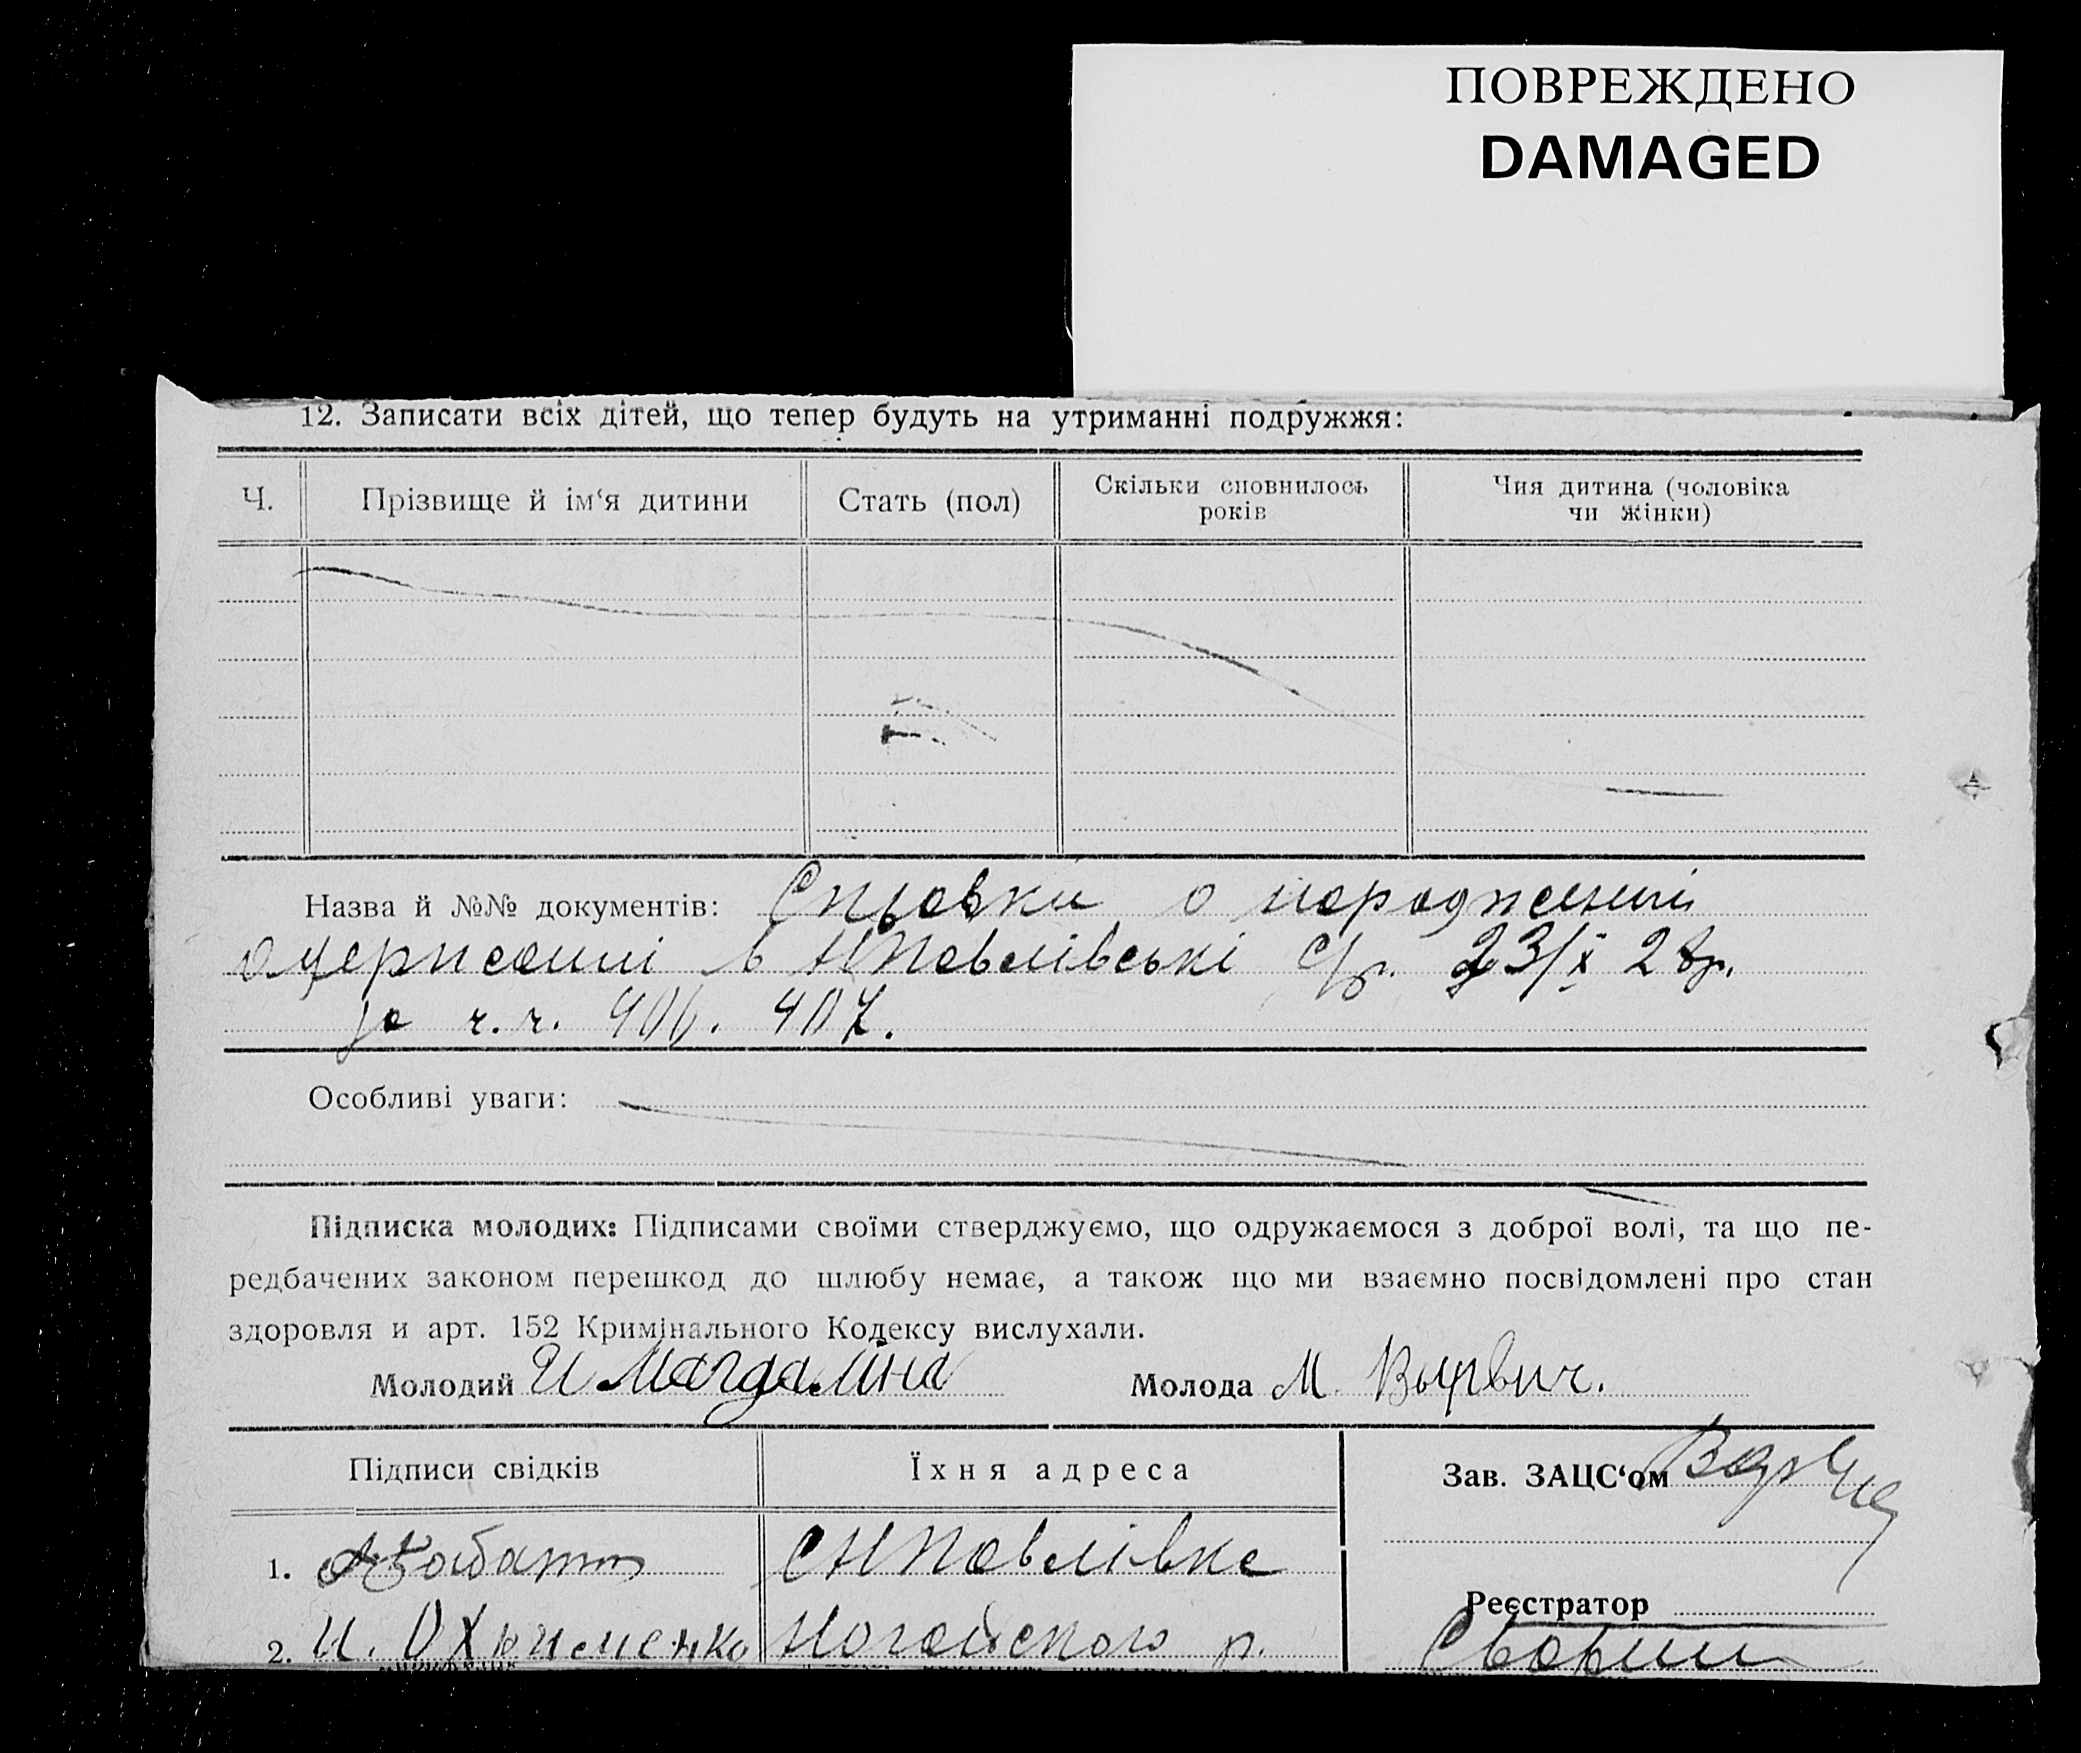 ПОВРЕЖДЕНО
DAMAGED
12. Записати всіх дітей, що тепер будуть на утриманні подружжя:
Ч. Прізвище й ім‘я дитини Стать (пол) Скільки сповнилось років Чия дитина (чоловіка чи жінки)
Назва й №№ документів: Справки о народженні
одержанні в НПавлівські с/р. 23/X 28р.
за ч.ч. 406. 407.
Особливі уваги:
Підписка молодих: Підписами своїми стверджуємо, що одружаємося з доброї волі, та що пе-
редбачених законом перешкод до шлюбу немає, а також що ми взаємно посвідомлені про стан
здоровля и арт. 152 Кримінального Кодексу вислухали.
Молодий И Магдалина Молода М.
Підписи свідків Їхня адреса Зав. ЗАЦС‘ом
1. С НПавлівка
Реєстратор
2. И. Охрименко Ногайского р.